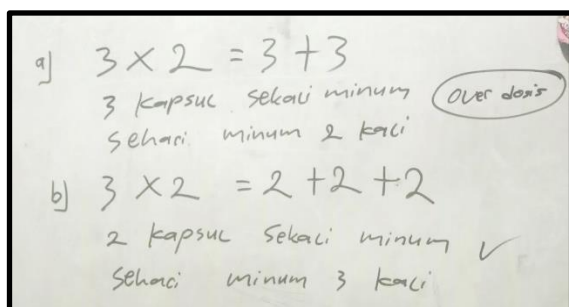 a] 3 × 2 = 3 + 3
3 kapsul sekali minum over dosis
sehari minum 2 kali
b] 3 × 2 = 2 + 2 + 2
2 kapsul sekali minum ✓
sehari minum 3 kali